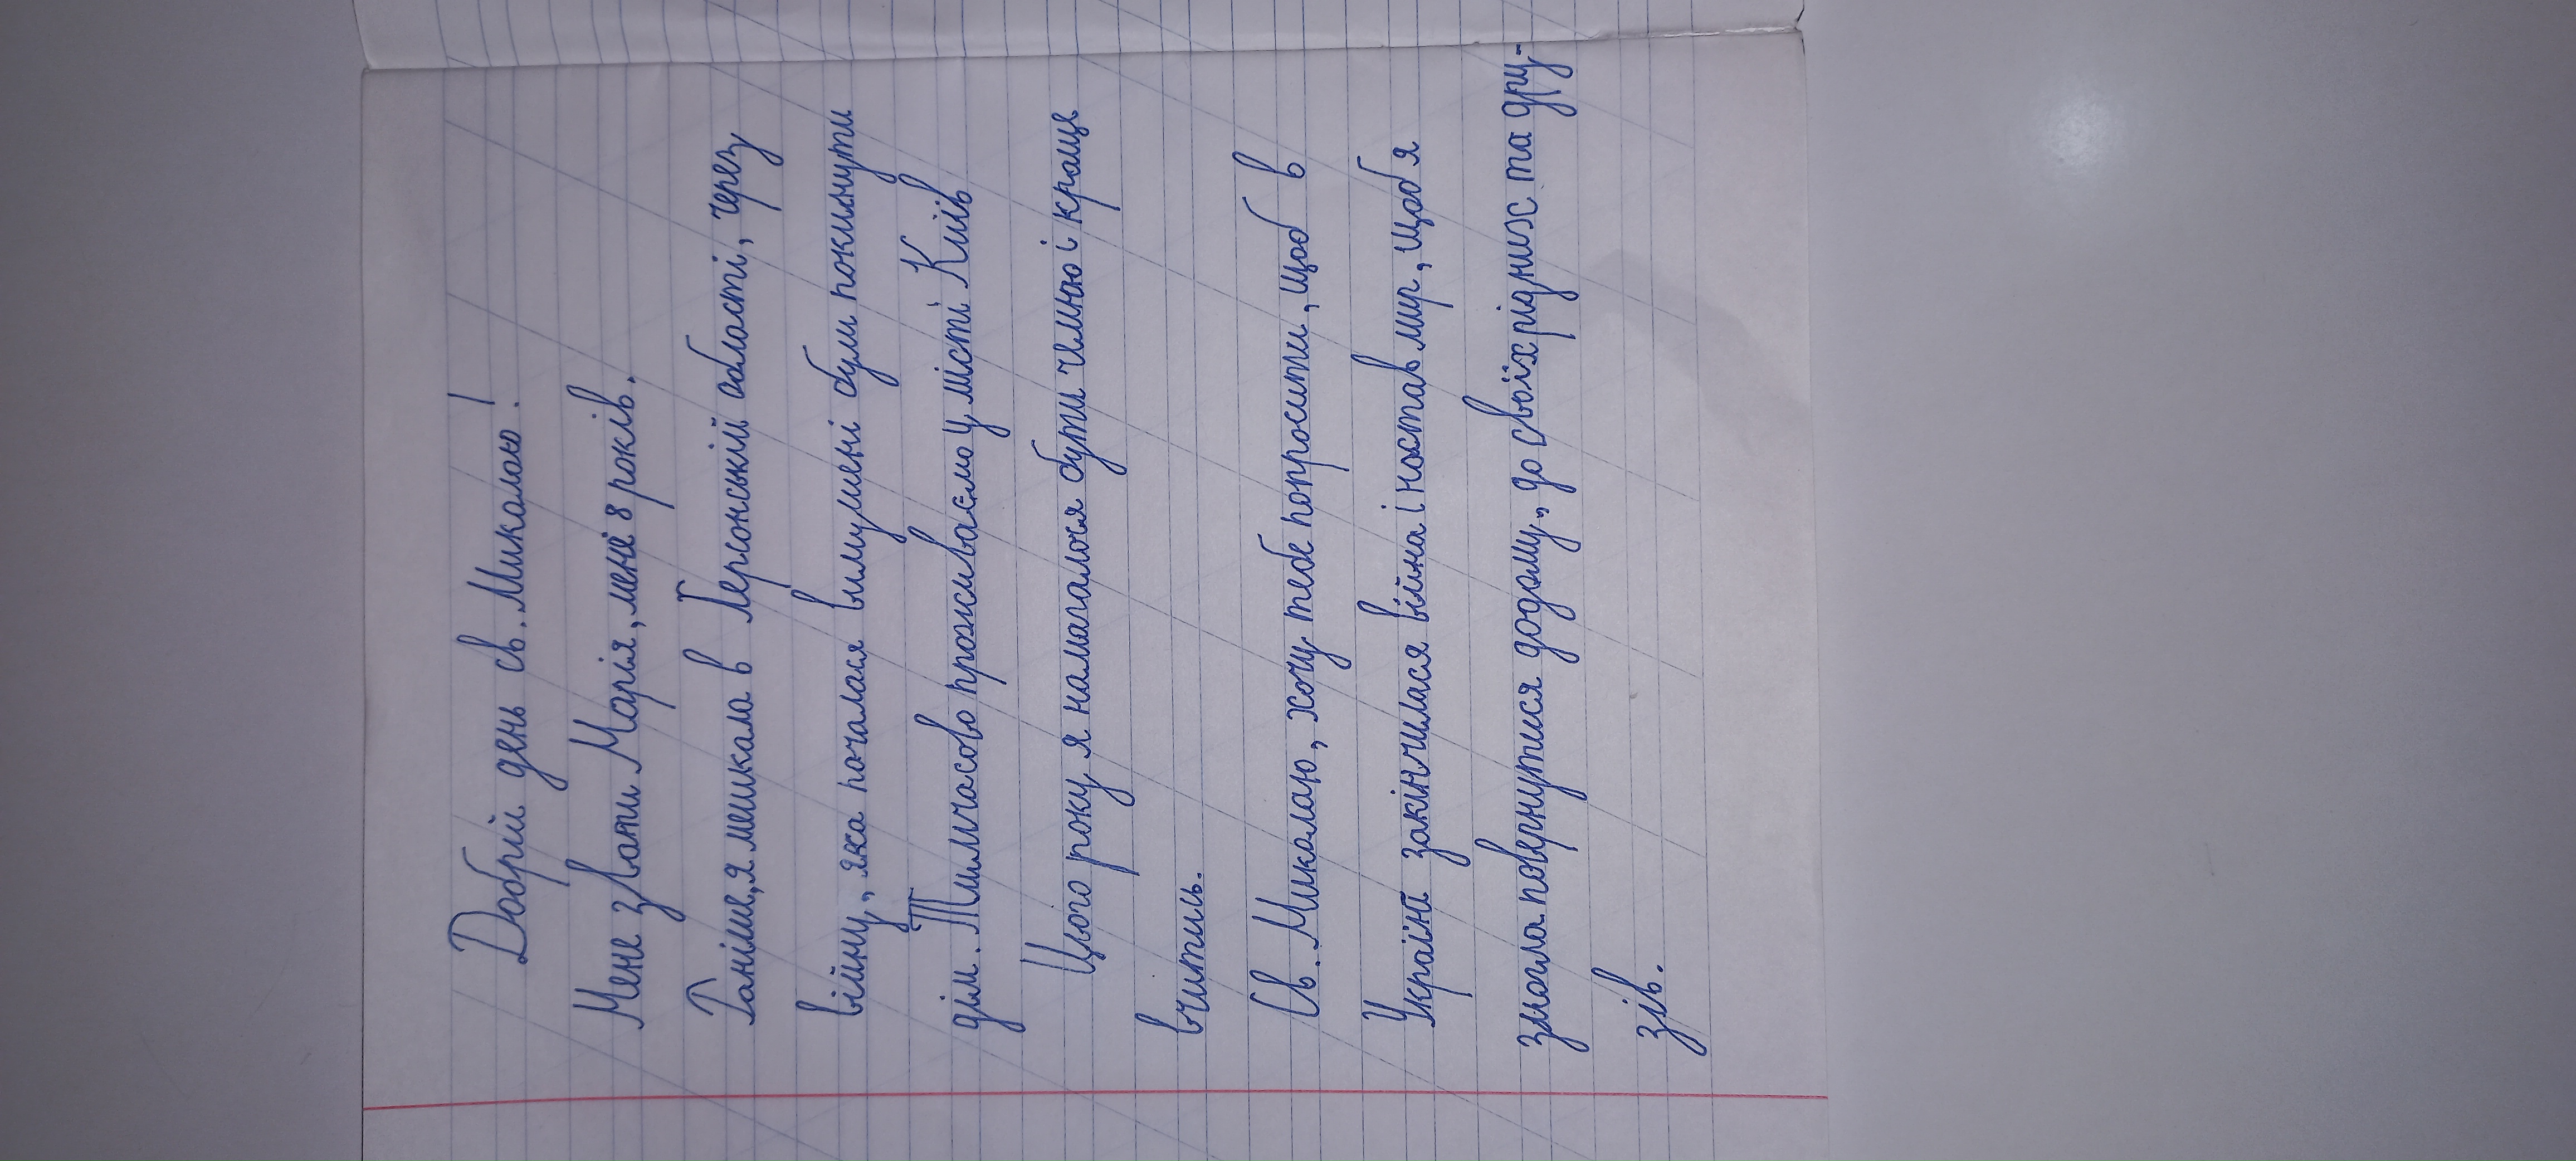 Добрій день св. Миколаю!
Мене звати Марія, мені 8 років.
Раніше, я мешкала в Херсонській області, через
війну, яка почалася вимушені були покинути
дім. Тимчасово проживаємо у місті Київ
Цього року я намагалася бути чемною і краще
вчитись.
Св. Миколаю, хочу тебе попросити, щоб в
Україні закінчилася війна і настав мир, щоб я
змогла повернутися додому, до своїх рідних та дру-
зів.